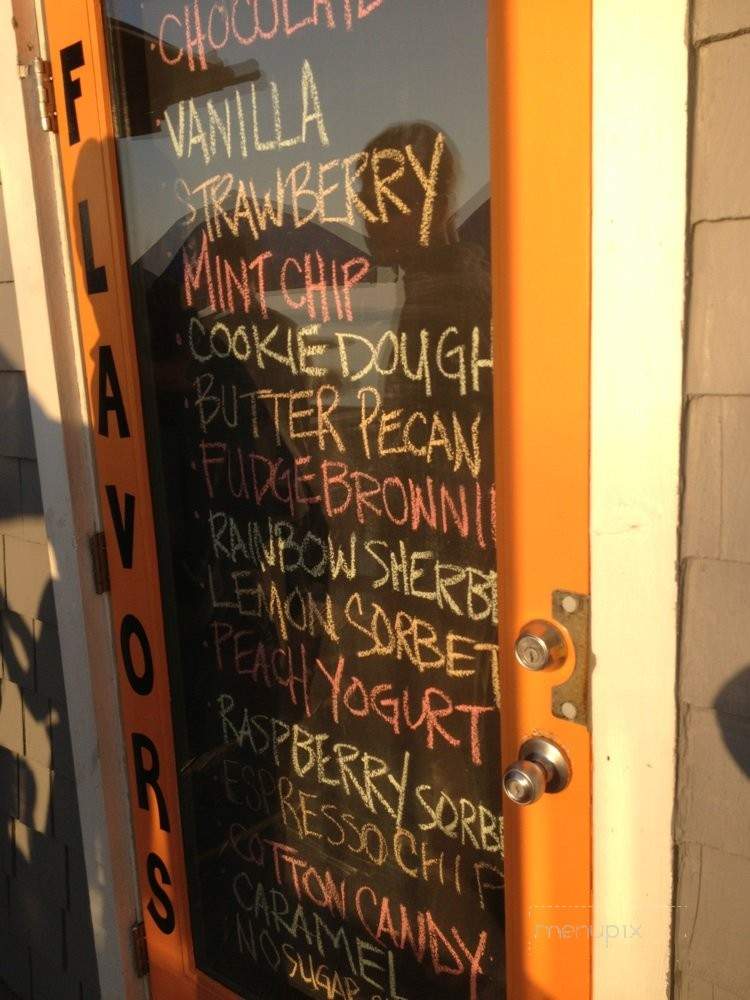 FLAVORS
CHOCOLATE
VANILLA
STRAWBERRY
MINT CHIP
COOKIE DOUGH
BUTTER PECAN
FUDGE BROWNI
RAINBOW SHERBE
LEMON SORBET
PEACH YOGURT
RASPBERRY SORBE
ESPRESSO CHIP
COTTON CANDY
CARAMEL
NO SUGAR
menupix